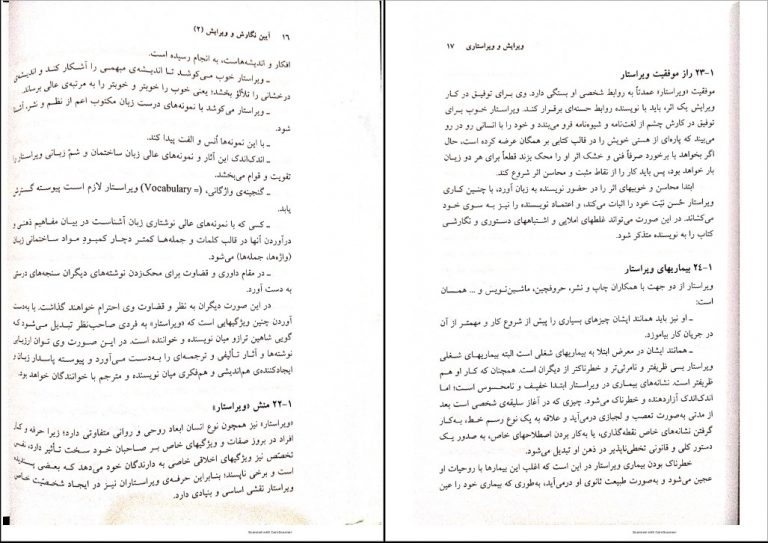 ۱۶ آیین نگارش و ویرایش (۲)
افکار و اندیشه‌هاست، به انجام رسیده است.
ـ ویراستار خوب می‌کوشد تا اندیشه‌ی مبهمی را آشکار کند و اندیشه‌ی
درخشانی را تلألؤ بخشد؛ یعنی خوب را خوبتر و خوبتر را به مرتبه‌ی عالی برساند.
ـ ویراستار می‌کوشد با نمونه‌های درست زبان مکتوب اعم از نظم و نثر، آشنا
شود.
ـ با این نمونه‌ها اُنس و الفت پیدا کند.
ـ اندک‌اندک این آثار و نمونه‌های عالی زبان ساختمان و شمّ زبانی ویراستار را
تقویت و قوام می‌بخشد.
ـ گنجینه‌ی واژگانی، (= Vocabulary) ویراستار لازم است پیوسته گسترش
یابد.
ـ کسی که با نمونه‌های عالی نوشتاری زبان آشناست در بیان مفاهیم ذهنی و
درآوردن آنها در قالب کلمات و جمله‌ها کمتر دچار کمبود مواد ساختمانی زبان
(واژه‌ها، جمله‌ها) می‌شود.
ـ در مقام داوری و قضاوت برای محک‌زدن نوشته‌های دیگران سنجه‌های درستی
به دست آورد.
در این صورت دیگران به نظر و قضاوت وی احترام خواهند گذاشت. با به‌دست
آوردن چنین ویژگیهایی است که «ویراستار» به فردی صاحب‌نظر تبدیل می‌شود که
گویی شاهین ترازو میان نویسنده و خواننده است. در این صورت وی توان ارزیابی
نوشته‌ها و آثار تألیفی و ترجمه‌ای را به‌دست می‌آورد و پیوسته پاسدار زبان و
ایجادکننده‌ی هم‌اندیشی و هم‌فکری میان نویسنده و مترجم با خوانندگان خواهد بود.
۱-۲۲ منش «ویراستار»
«ویراستار» نیز همچون نوع انسان ابعاد روحی و روانی متفاوتی دارد؛ زیرا حرفه و کار
افراد در بروز صفات و ویژگیهای خاص بر صاحبان خود سخت تأثیر دارد، نفس
تخصّص نیز ویژگیهای اخلاقی خاصی به دارندگان خود می‌دهد که بعضی پسندیده
است و برخی ناپسند؛ بنابراین حرفه‌ی ویراستاران نیز در ایجاد شخصیّت خاص
ویراستار نقشی اساسی و بنیادی دارد.
Scanned with CamScanner
ویرایش و ویراستاری ۱۷
۱-۲۳ راز موفقیت ویراستار
موفقیت «ویراستار» عمدتاً به روابط شخصی او بستگی دارد. وی برای توفیق در کار
ویرایش یک اثر، باید با نویسنده روابط حسنه‌ای برقرار کند. ویراستار خوب برای
توفیق در کارش چشم از لغت‌نامه و شیوه‌نامه فرو می‌بندد و خود را با انسانی رو در رو
می‌کند که پاره‌ای از هستی خویش را در قالب کتابی بر همگان عرضه کرده است، حال
اگر بخواهد با برخورد صرفاً فنی و خشک اثر او را محک بزند قطعاً برای هر دو زیان
بار خواهد بود، پس باید کار را از نقاط مثبت و محاسن اثر شروع کند.
ابتدا محاسن و خوبیهای اثر را در حضور نویسنده به زبان آورد، با چنین کاری
ویراستار حُسن نیّت خود را اثبات می‌کند، و اعتماد نویسنده را نیز به سوی خود
می‌کشاند. در این صورت می‌تواند غلطهای املایی و اشتباههای دستوری و نگارشی
کتاب را به نویسنده متذکر شود.
۱-۲۴ بیماریهای ویراستار
ویراستار از دو جهت با همکاران چاپ و نشر، حروفچین، ماشین‌نویس و ... همسان
است:
ـ او نیز باید همانند ایشان چیزهای بسیاری را پیش از شروع کار و مهمتر از آن
در جریان کار بیاموزد.
ـ همانند ایشان در معرض ابتلا به بیماریهای شغلی است البته بیماریهای شغلی
ویراستار بسی ظریفتر و نامرئی‌تر و خطرناکتر از دیگران است. همچنان که کار او هم
ظریفتر است. نشانه‌های بیماری در ویراستار ابتدا خفیف و نامحسوس است؛ اما
اندک‌اندک آزاردهنده و خطرناک می‌شود. چیزی که در آغاز سلیقه‌ی شخصی است بعد
از مدتی به‌صورت تعصب و لجبازی درمی‌آید و علاقه به یک نوع رسم خط، به‌کار
گرفتن نشانه‌های خاص نقطه‌گذاری، یا به‌کار بردن اصطلاحهای خاص، به صدور یک
دستور کلی و قانونی تخطی‌ناپذیر در ذهن او تبدیل می‌شود.
خطرناک بودن بیماری ویراستار در این است که اغلب این بیمارها با روحیات او
عجین می‌شود و به‌صورت طبیعت ثانوی او درمی‌آید، به‌طوری که بیماری خود را عین
Scanned with CamScanner